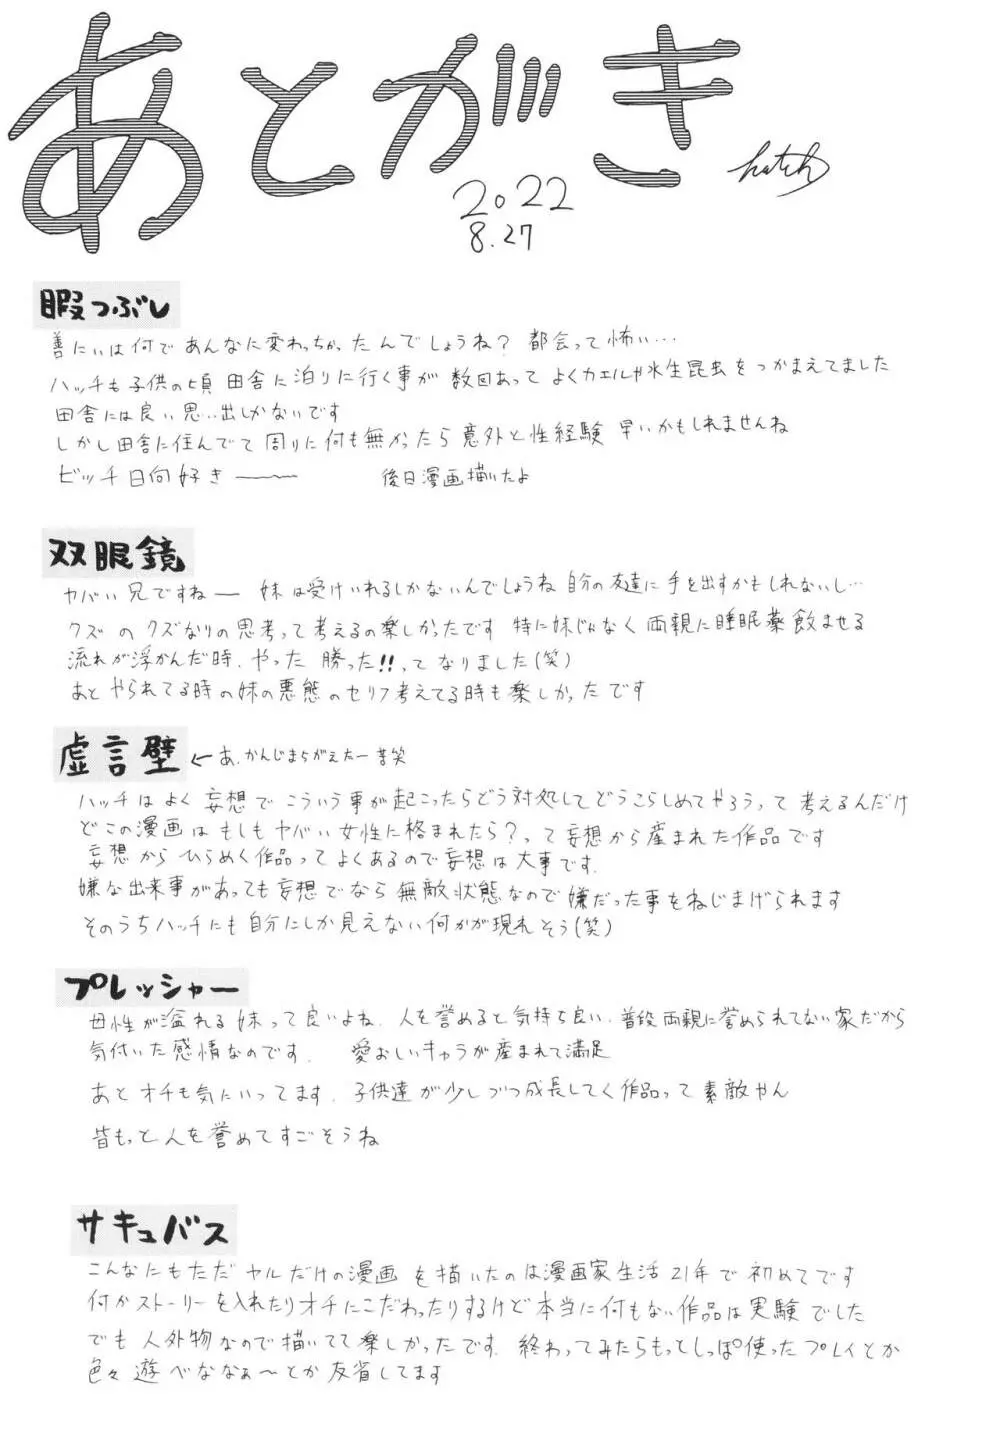 あとがき
hatch
2022
8.27
暇つぶし
善にぃは何であんなに変わっちゃったんでしょうね? 都会って怖い…
ハッチも子供の頃 田舎に泊りに行く事が 数回あって よくカエルや水生昆虫をつかまえてました
田舎には良い思い出しかないです
しかし田舎に住んでて 周りに何も無かったら 意外と性経験 早いかもしれませんね
ビッチ日向好き〜 後日漫画描いたよ
双眼鏡
ヤバい兄ですねー 妹は受けいれるしかないんでしょうね 自分の友達に手を出すかもしれないし…
クズのクズなりの思考って考えるの楽しかったです 特に妹じゃなく両親に睡眠薬飲ませる
流れが浮かんだ時、やった 勝った!!ってなりました(笑)
あと やられてる時の妹の悪態のセリフ考えてる時も楽しかったです
虚言壁 ←あ、かんじまちがえたー苦笑
ハッチはよく 妄想で こういう事が起こったらどう対処してどうこらしめてやろうって 考えるんだけ
どこの漫画は もしもヤバい女性に格まれたら?って妄想から産まれた作品です
妄想から ひらめく作品ってよくあるので妄想は大事です。
嫌な出来事があっても妄想でなら無敵状態なので嫌だった事をねじまげられます
そのうちハッチにも自分にしか見えない何かが現れそう(笑)
プレッシャー
母性が溢れる妹って良いよね、人を誉めると気持ち良い、普段両親に誉められてない家だから
気付いた感情なのです。 愛おしいキャラが産まれて満足
あと オチも気にいってます、子供達が少しづつ成長してく作品って素敵やん
皆もっと人を誉めてすごそうね
サキュバス
こんなにもただヤルだけの漫画を描いたのは漫画家生活21年で初めてです
何かストーリーを入れたりオチにこだわったりするけど本当に何もない作品は実験でした
でも 人外物なので描いてて楽しかったです、終わってみたらもっとしっぽ使ったプレイとか
色々遊べたなぁ〜とか反省してます